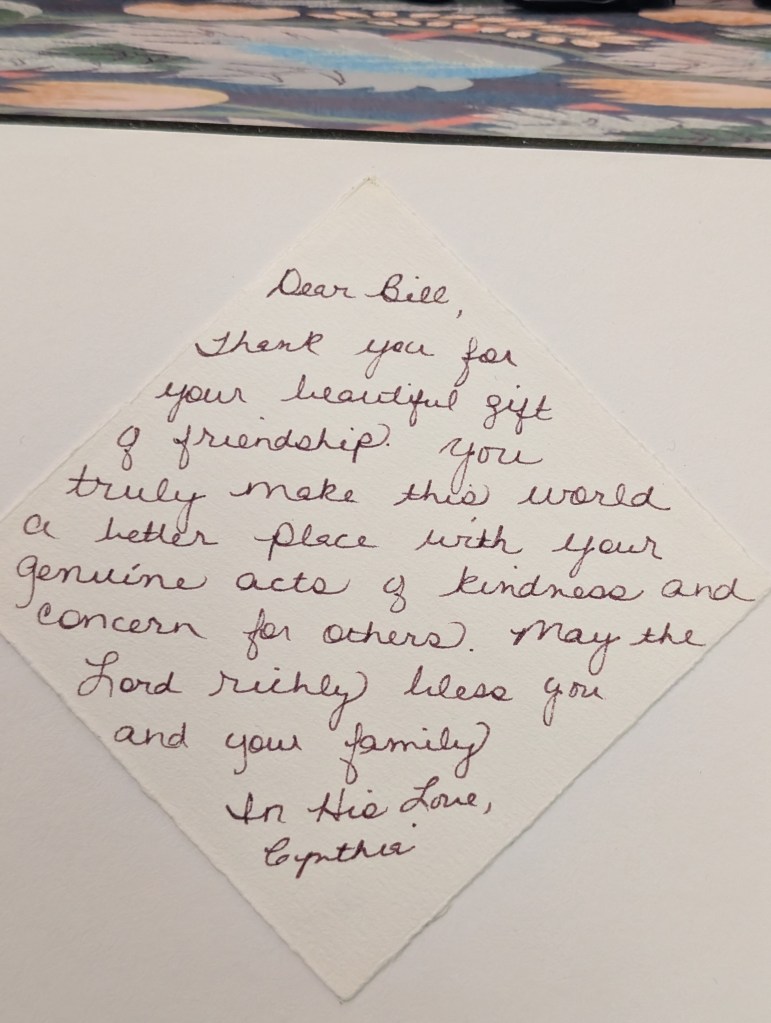 Dear Bill,
Thank you for
your beautiful gift
of friendship. You
truly make this world
a better place with your
genuine acts of kindness and
concern for others. May the
Lord richly bless you
and your family
In His Love,
Cynthia